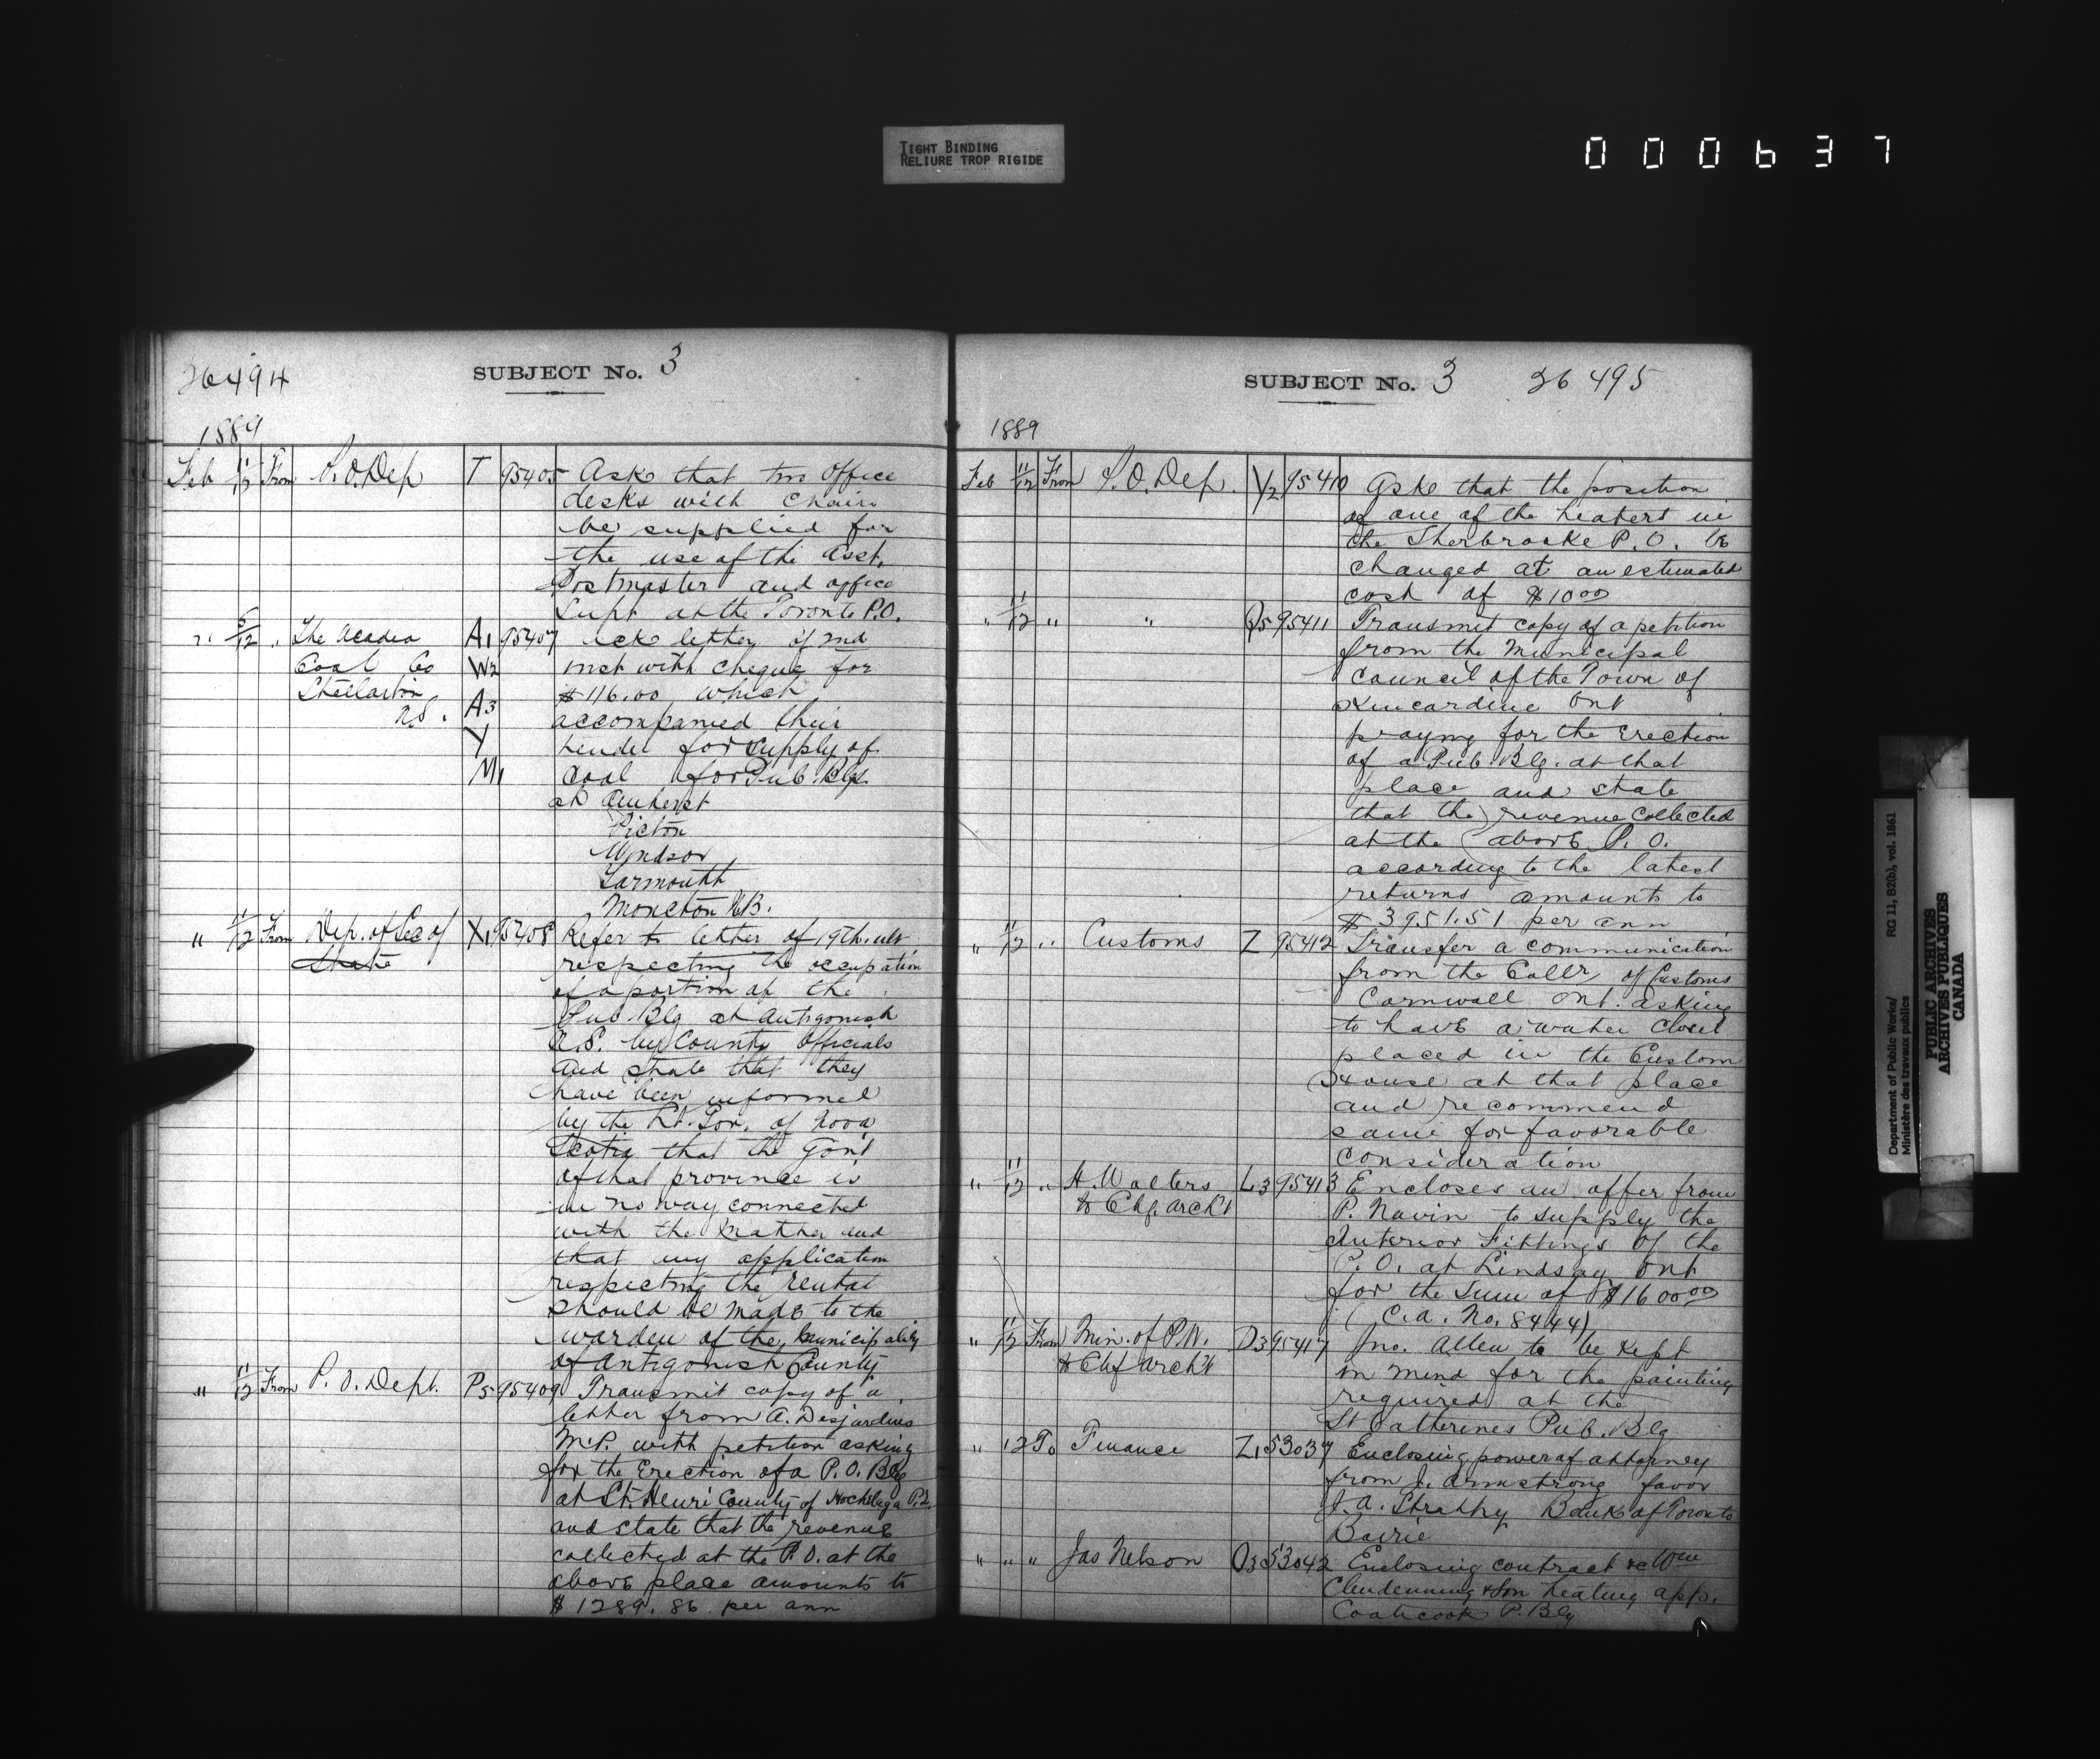 TIGHT BINDING
RELIURE TROP RIGIDE
000637
26494
SUBJECT No. 3
1889
Feb 11/12 From P.O. Dep T 95405 Ask that two office
desks with chairs
be supplied for
the use of the asst.
Postmaster and office
Supt at the Toronto P.O.
" 5/12 " The Acadia A1 95407 Ack letter of 2nd
Coal Co W2 inst with cheque for
Stellarton A3 $116.00 which
N.S. accompanied their
Y tender for supply of
M1 Coal for Pub. Blgs.
at Amherst
Pictou
Windsor
Yarmouth
Moncton N.B.
" 11/12 From Dep. of Sec of X1 95408 Refer to letter of 19th. ult
State respecting the occupation
of a portion of the
Pub. Blg at Antigonish
N.S. by County Officials
and state that they
have been informed
by the Lt. Gov. of Nova
Scotia that the Gov't
of that province is
in no way connected
with the matter and
that any application
respecting the rental
should be made to the
warden of the Municipality
of Antigonish County
" 11/12 From P.O. Dept. P5 95409 Transmit copy of a
letter from A. Desjardins
M.P. with petition asking
for the Erection of a P.O. Blg
at St. Henri County of Hochelaga P.Q.
and state that the revenue
collected at the P.O. at the
above place amounts to
$1289.86 per ann
SUBJECT No. 3 26495
1889
Feb 11/12 From P.O. Dep. Y2 95410 Ask that the position
of one of the heaters in
the Sherbrooke P.O. be
changed at an estimated
cost of $10 00
" 11/12 " " Q5 95411 Transmit copy of a petition
from the Municipal
Council of the Town of
Kincardine Ont
praying for the Erection
of a Pub. Blg. at that
place and state
that the revenue collected
at the above P.O.
according to the latest
returns amounts to
$3951.51 per ann
" 11/12 " Customs Z 95412 Transfer a communication
from the Collr of Customs
Cornwall Ont. asking
to have a water closet
placed in the Custom
House at that place
and recommend
same for favorable
consideration
" 11/12 " H. Walters L3 95413 Encloses an offer from
to Chf. Arch't P. Navin to supply the
Interior Fittings of the
P.O. at Lindsay Ont
for the Sum of $1600 00
(C.A. No. 8444)
" 11/12 From Min. of P.W. D3 95417 Jno. Allen to be kept
to Chf Arch't in mind for the painting
required at the
St Catherines Pub. Blg
" 12 To Finance Z1 53037 Enclosing power of attorney
from J. Armstrong favor
J.A. Strathy Bank of Toronto
Barrie
" " " Jas Nelson O3 53042 Enclosing contract &c Wm
Clendenning & Son heating app.
Coaticook P. Blg
Department of Public Works/ RG 11, B2(b), vol. 1861
Ministère des travaux publics
PUBLIC ARCHIVES
ARCHIVES PUBLIQUES
CANADA